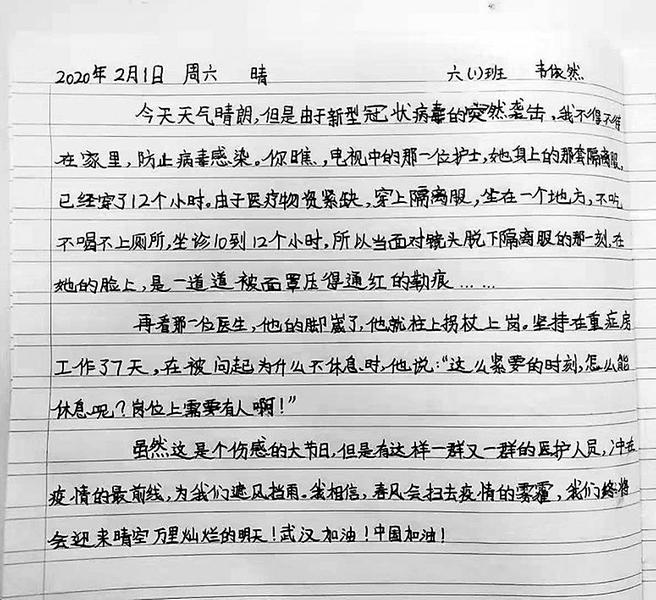 2020年2月1日 周六 晴 六(1)班 韦依然
今天天气晴朗,但是由于新型冠状病毒的突然袭击,我不得不待
在家里,防止病毒感染。你瞧,电视中的那一位护士,她身上的那套隔离服,
已经穿了12个小时。由于医疗物资紧缺,穿上隔离服,坐在一个地方,不吃
不喝不上厕所,坐诊10到12个小时,所以当面对镜头脱下隔离服的那一刻,在
她的脸上,是一道道被面罩压得通红的勒痕……
再看那一位医生,他的脚崴了,他就柱上拐杖上岗。坚持在重症房
工作了7天,在被问起为什么不休息时,他说:“这么紧要的时刻,怎么能
休息呢?岗位上需要有人啊!”
虽然这是个伤感的大节日,但是有这样一群又一群的医护人员,冲在
疫情的最前线,为我们遮风挡雨。我相信,春风会扫去疫情的雾霾,我们终将
会迎来晴空万里灿烂的明天!武汉加油!中国加油!